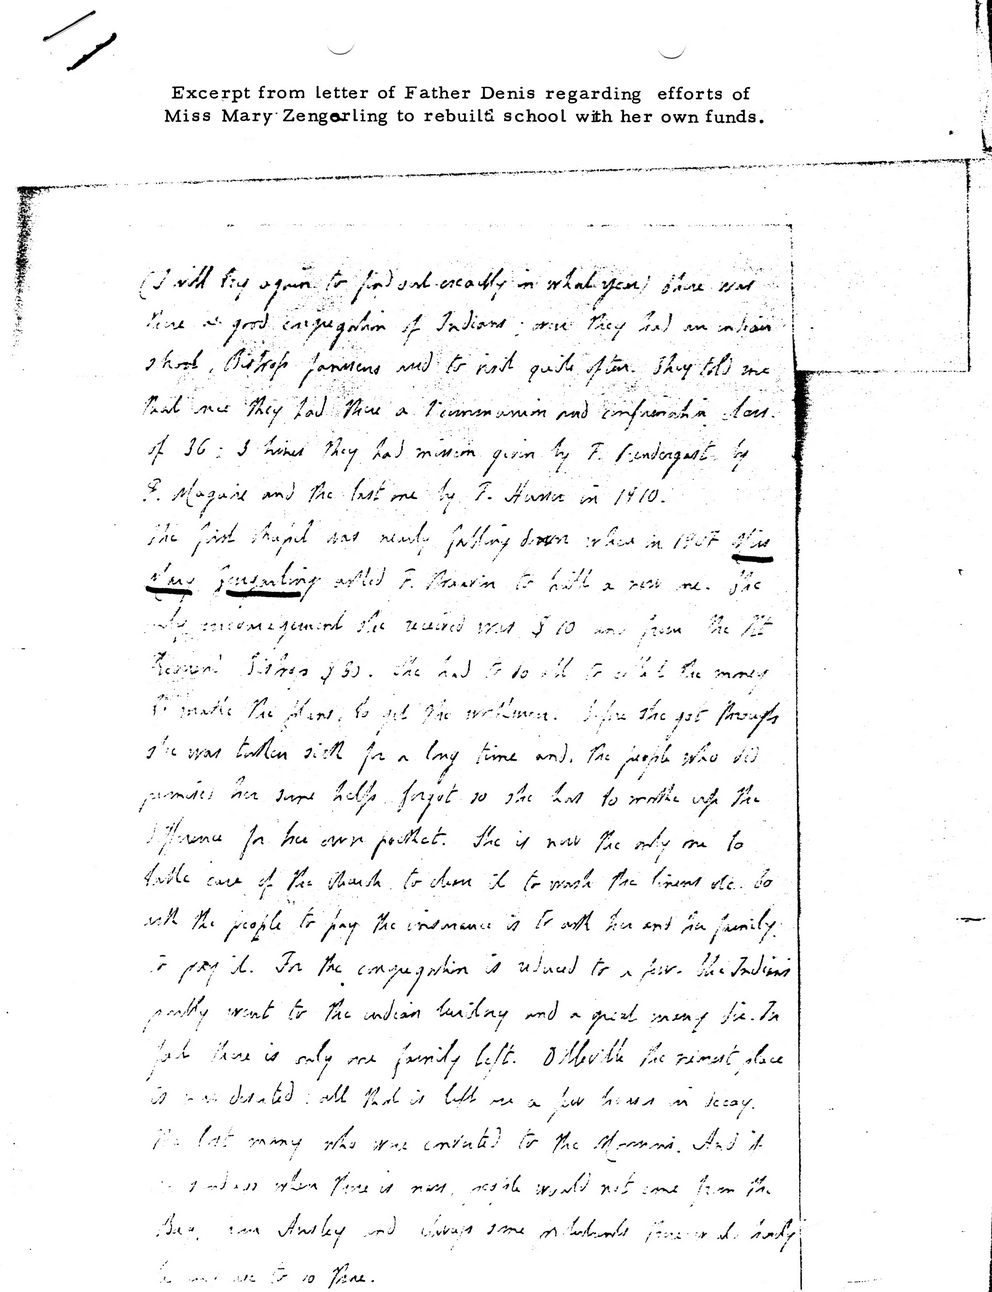 Excerpt from letter of Father Denis regarding efforts of
Miss Mary Zengerling to rebuild school with her own funds.
(I will try again to find out exactly in what year) there was
there a good congregation of Indians; once they had an indian
school, Bishop Janssens used to visit quite often. They told me
that once they had there a 1 communion and confirmation class
of 36; 3 times they had mission given by F. Pendergast, by
F. Maguire and the last one by F. Hunser in 1910.
The first chapel was nearly falling down when in 1907 Miss
Mary Zengarling asked F. to built a new one. The
only encouragement she received was $10 and from the Rt
Reverend Bishop $50. She had to do all to collect the money
to make the plans, to get the workmen. Before she got through
she was taken sick for a long time and, the people who did
promised her some help forgot so she has to make up the
difference for her own pocket. She is now the only one to
take care of the church, to clean it to wash the linens etc. To
ask the people to pay the insurance is to ask her and her family
to pay it. For the congregation is reduced to a few. The Indians
partly went to the indian territory and a great many die. In
fact there is only one family left. Dilleville the nearest place
is deserted: all that is left are a few houses in decay.
The last many who were converted to the Mormons. And it
is when there is mass, people would not come from the
Bay, Ansley and always some there hardly
to go there.